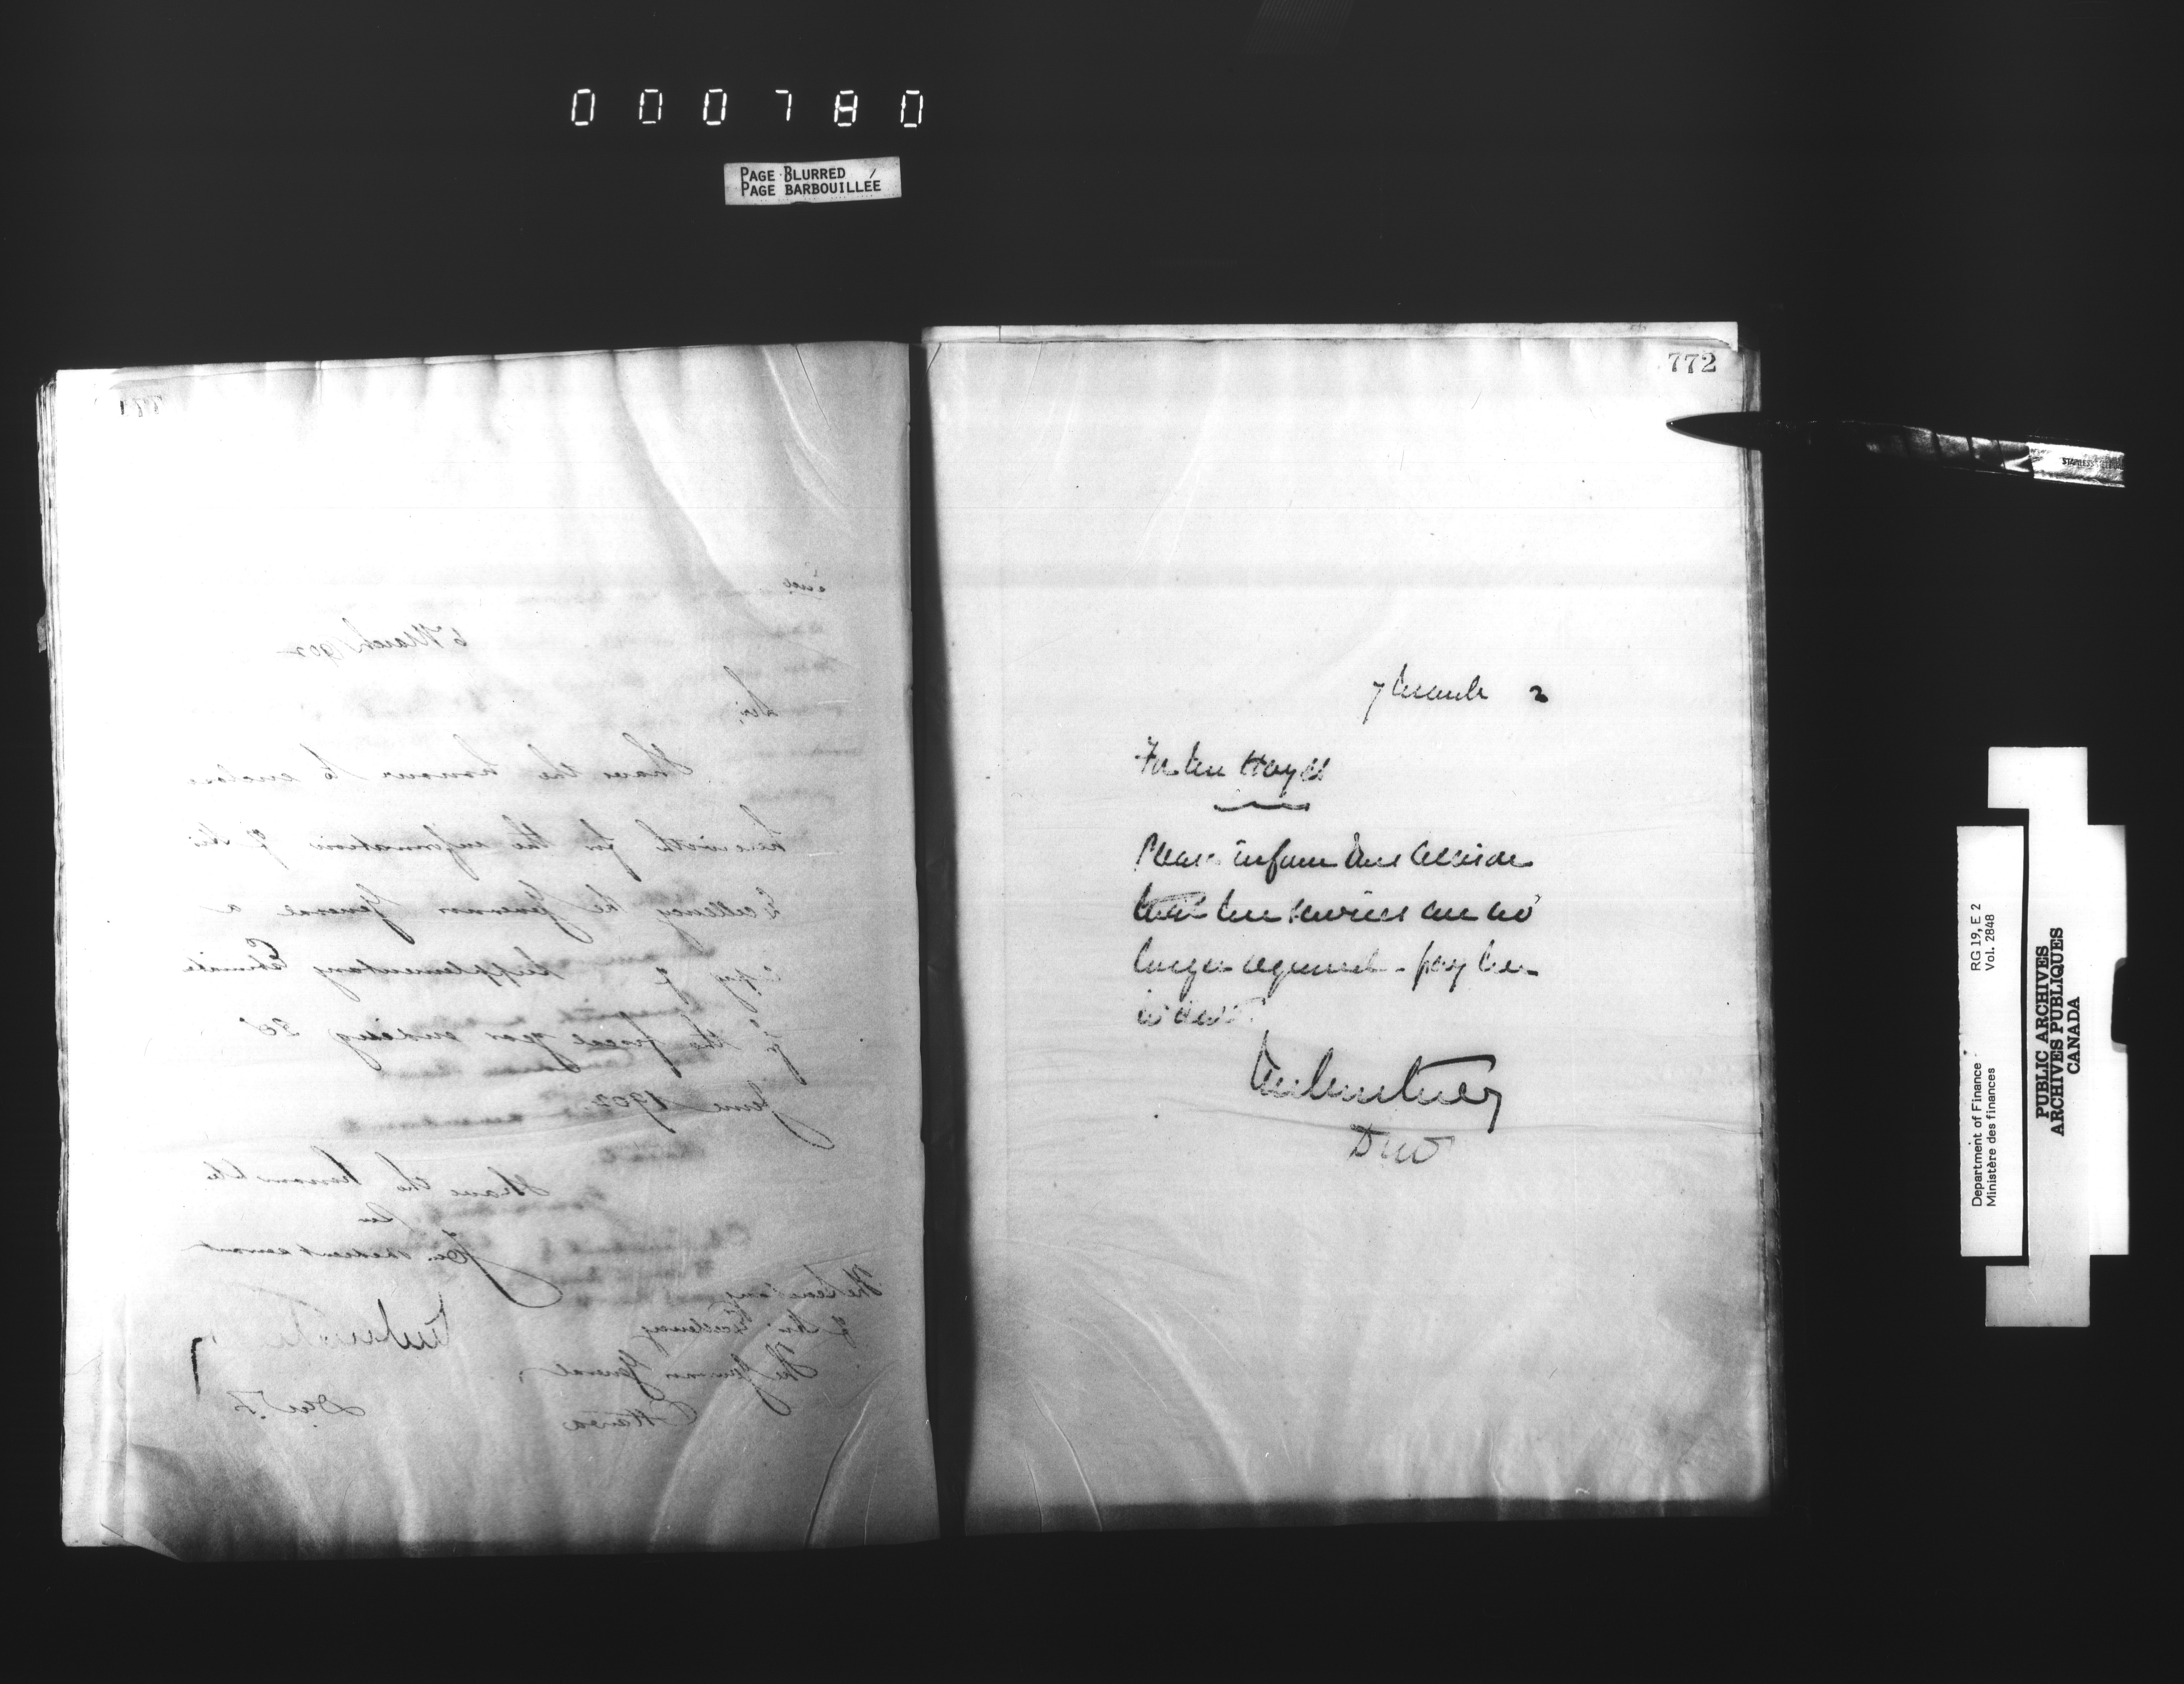 000780
PAGE BLURRED /
PAGE BARBOUILLÉE
6 March 1902
Sir,
I have the honour to enclose
herewith for the information of His
Excellency the Governor General a
copy of Supplementary Estimates
for the fiscal year ending 30
June 1902.
I have the honour to be
Sir
Your obedient servant
The Secretary
of His Excellency
The Governor General,
Ottawa
772
7 March 2
For Mr Hayes
Please inform
that her services are no
longer required - pay her
to date
STAINLESS STEEL
RG 19, E 2
Vol. 2848
Department of Finance
Ministère des finances
PUBLIC ARCHIVES
ARCHIVES PUBLIQUES
CANADA